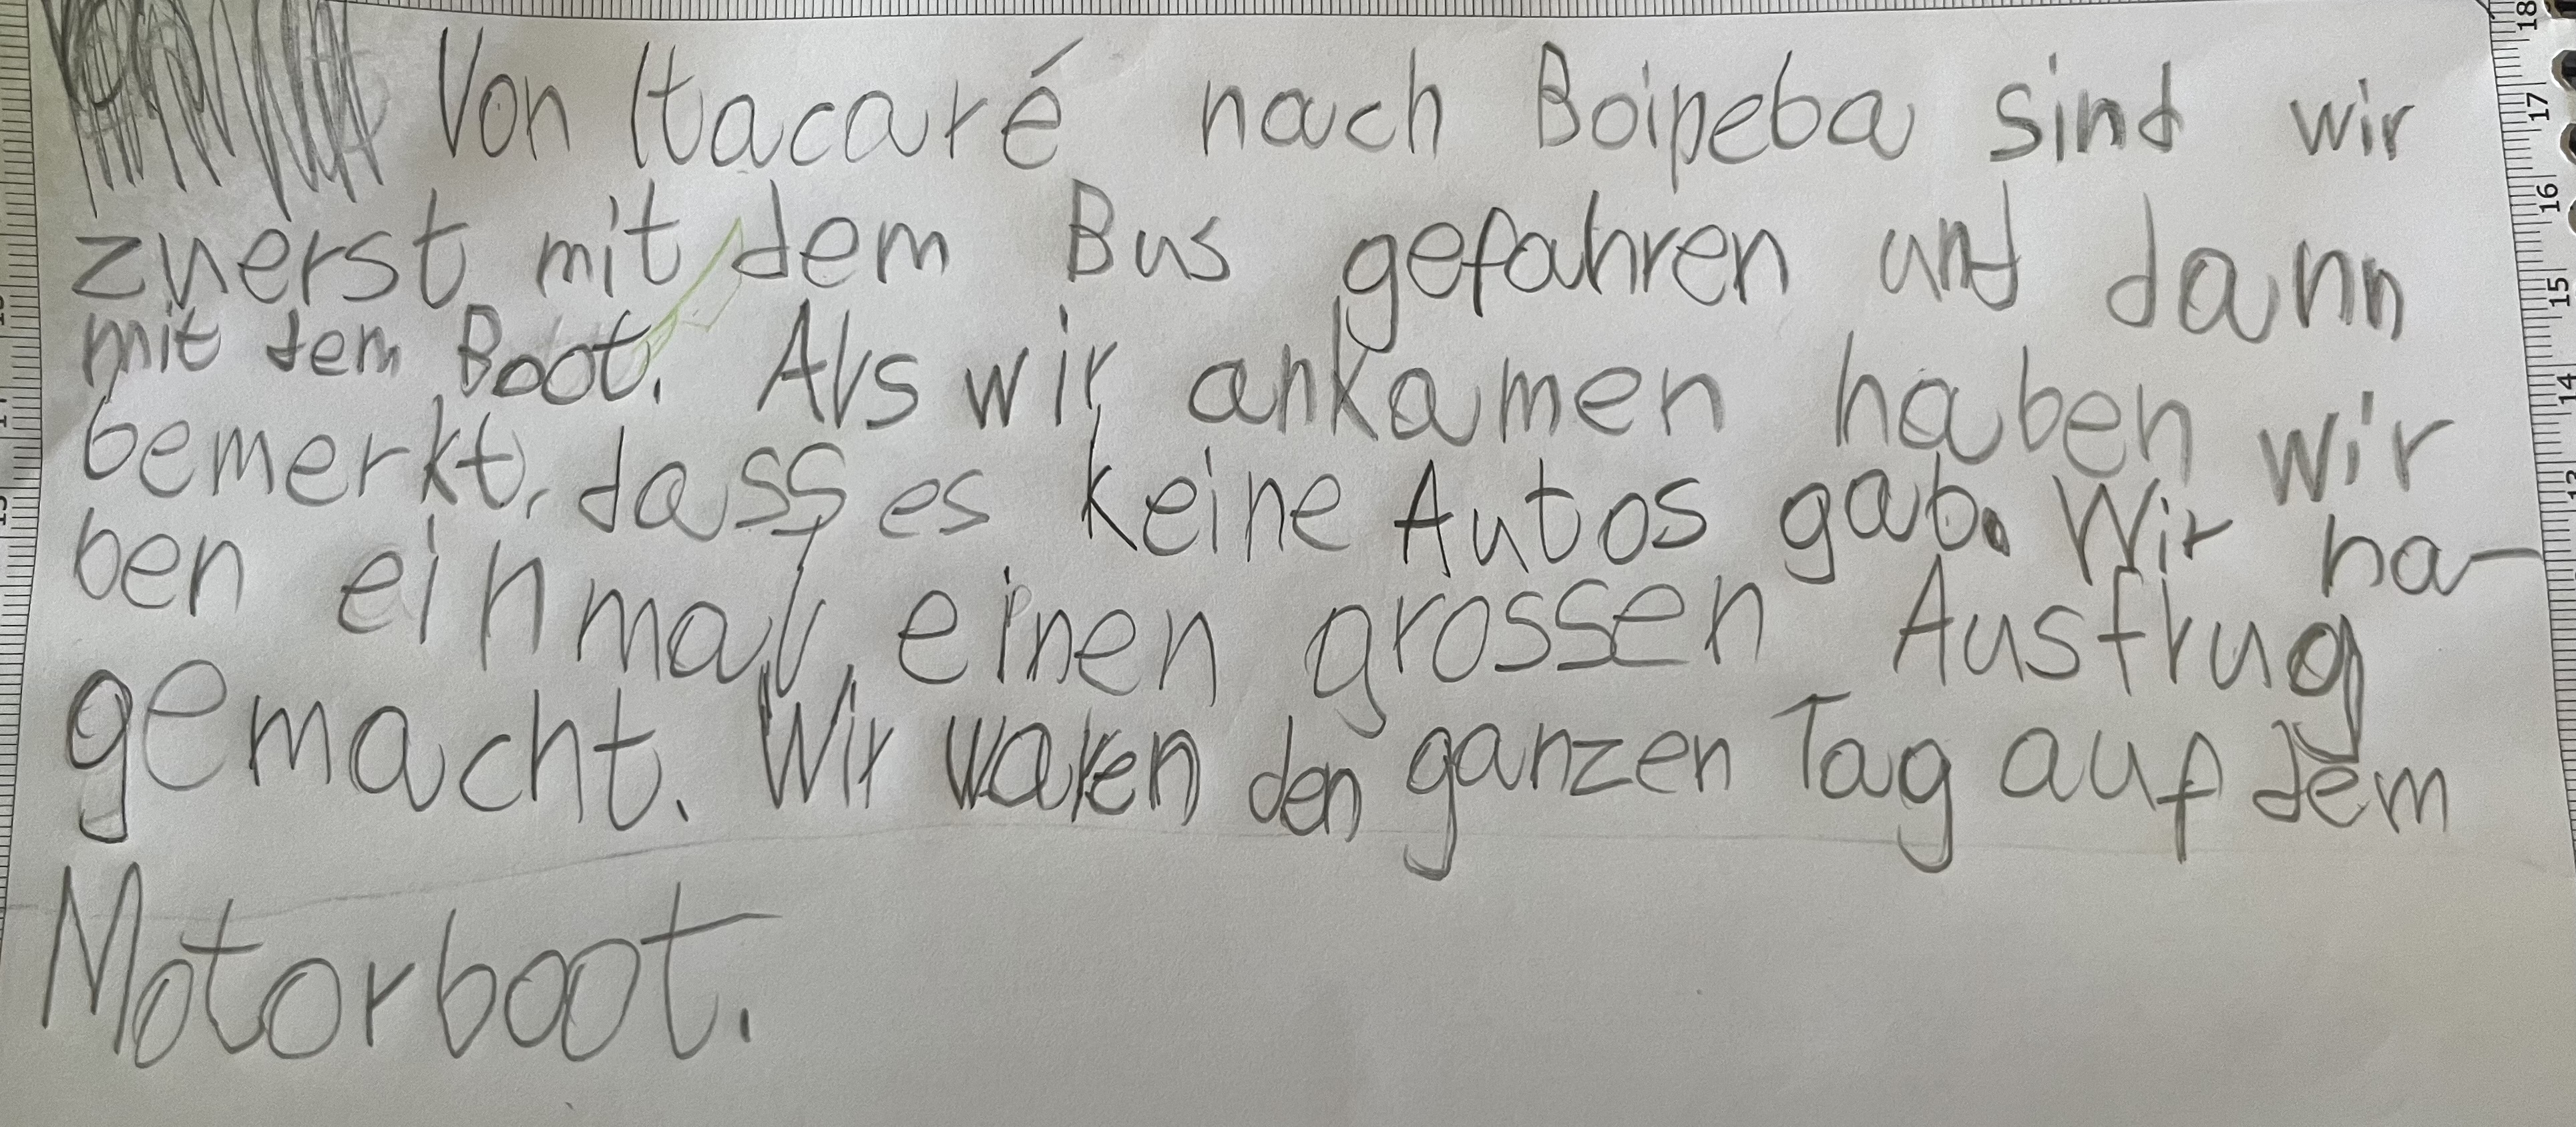 Von Itacaré nach Boipeba sind wir
zuerst mit dem Bus gefahren und dann
mit dem Boot. Als wir ankamen haben wir
bemerkt, dass es keine Autos gab. Wir ha-
ben einmal einen grossen Ausflug
gemacht. Wir waren den ganzen Tag auf dem
Motorboot.
18
17
16
15
14